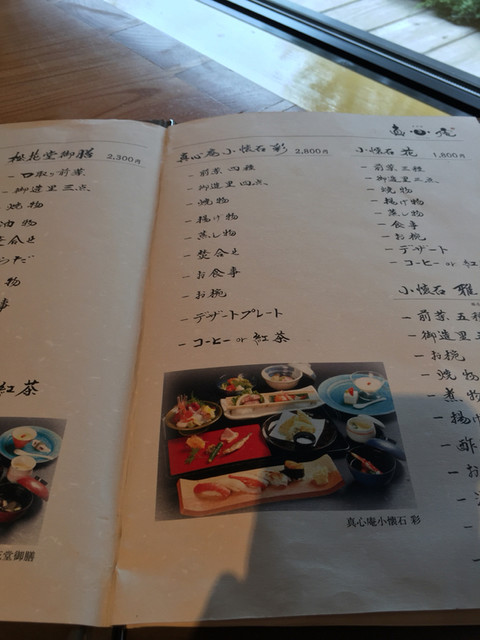 松花堂御膳 2,300円
- 口取り前菜
- 御造里 三点
- 焼物
油物
焚合せ
物
事
紅茶
堂御膳
真心庵小懐石 彩 2,800円
- 前菜 四種
- 御造里 四点
- 焼物
- 揚げ物
- 蒸し物
- 焚合せ
- お食事
- お椀
- デザートプレート
- コーヒー or 紅茶
真心庵小懐石 彩
小懐石 花 1,800円
- 前菜 三種
- 御造里 三点
- 焼物
- 揚げ物
- 蒸し物
- 食事
- お椀
- デザート
- コーヒー or 紅
小懐石 雅
- 前菜 五種
- 御造里 五
- お椀
- 焼物
- 煮物
- 揚げ
- 酢
- お